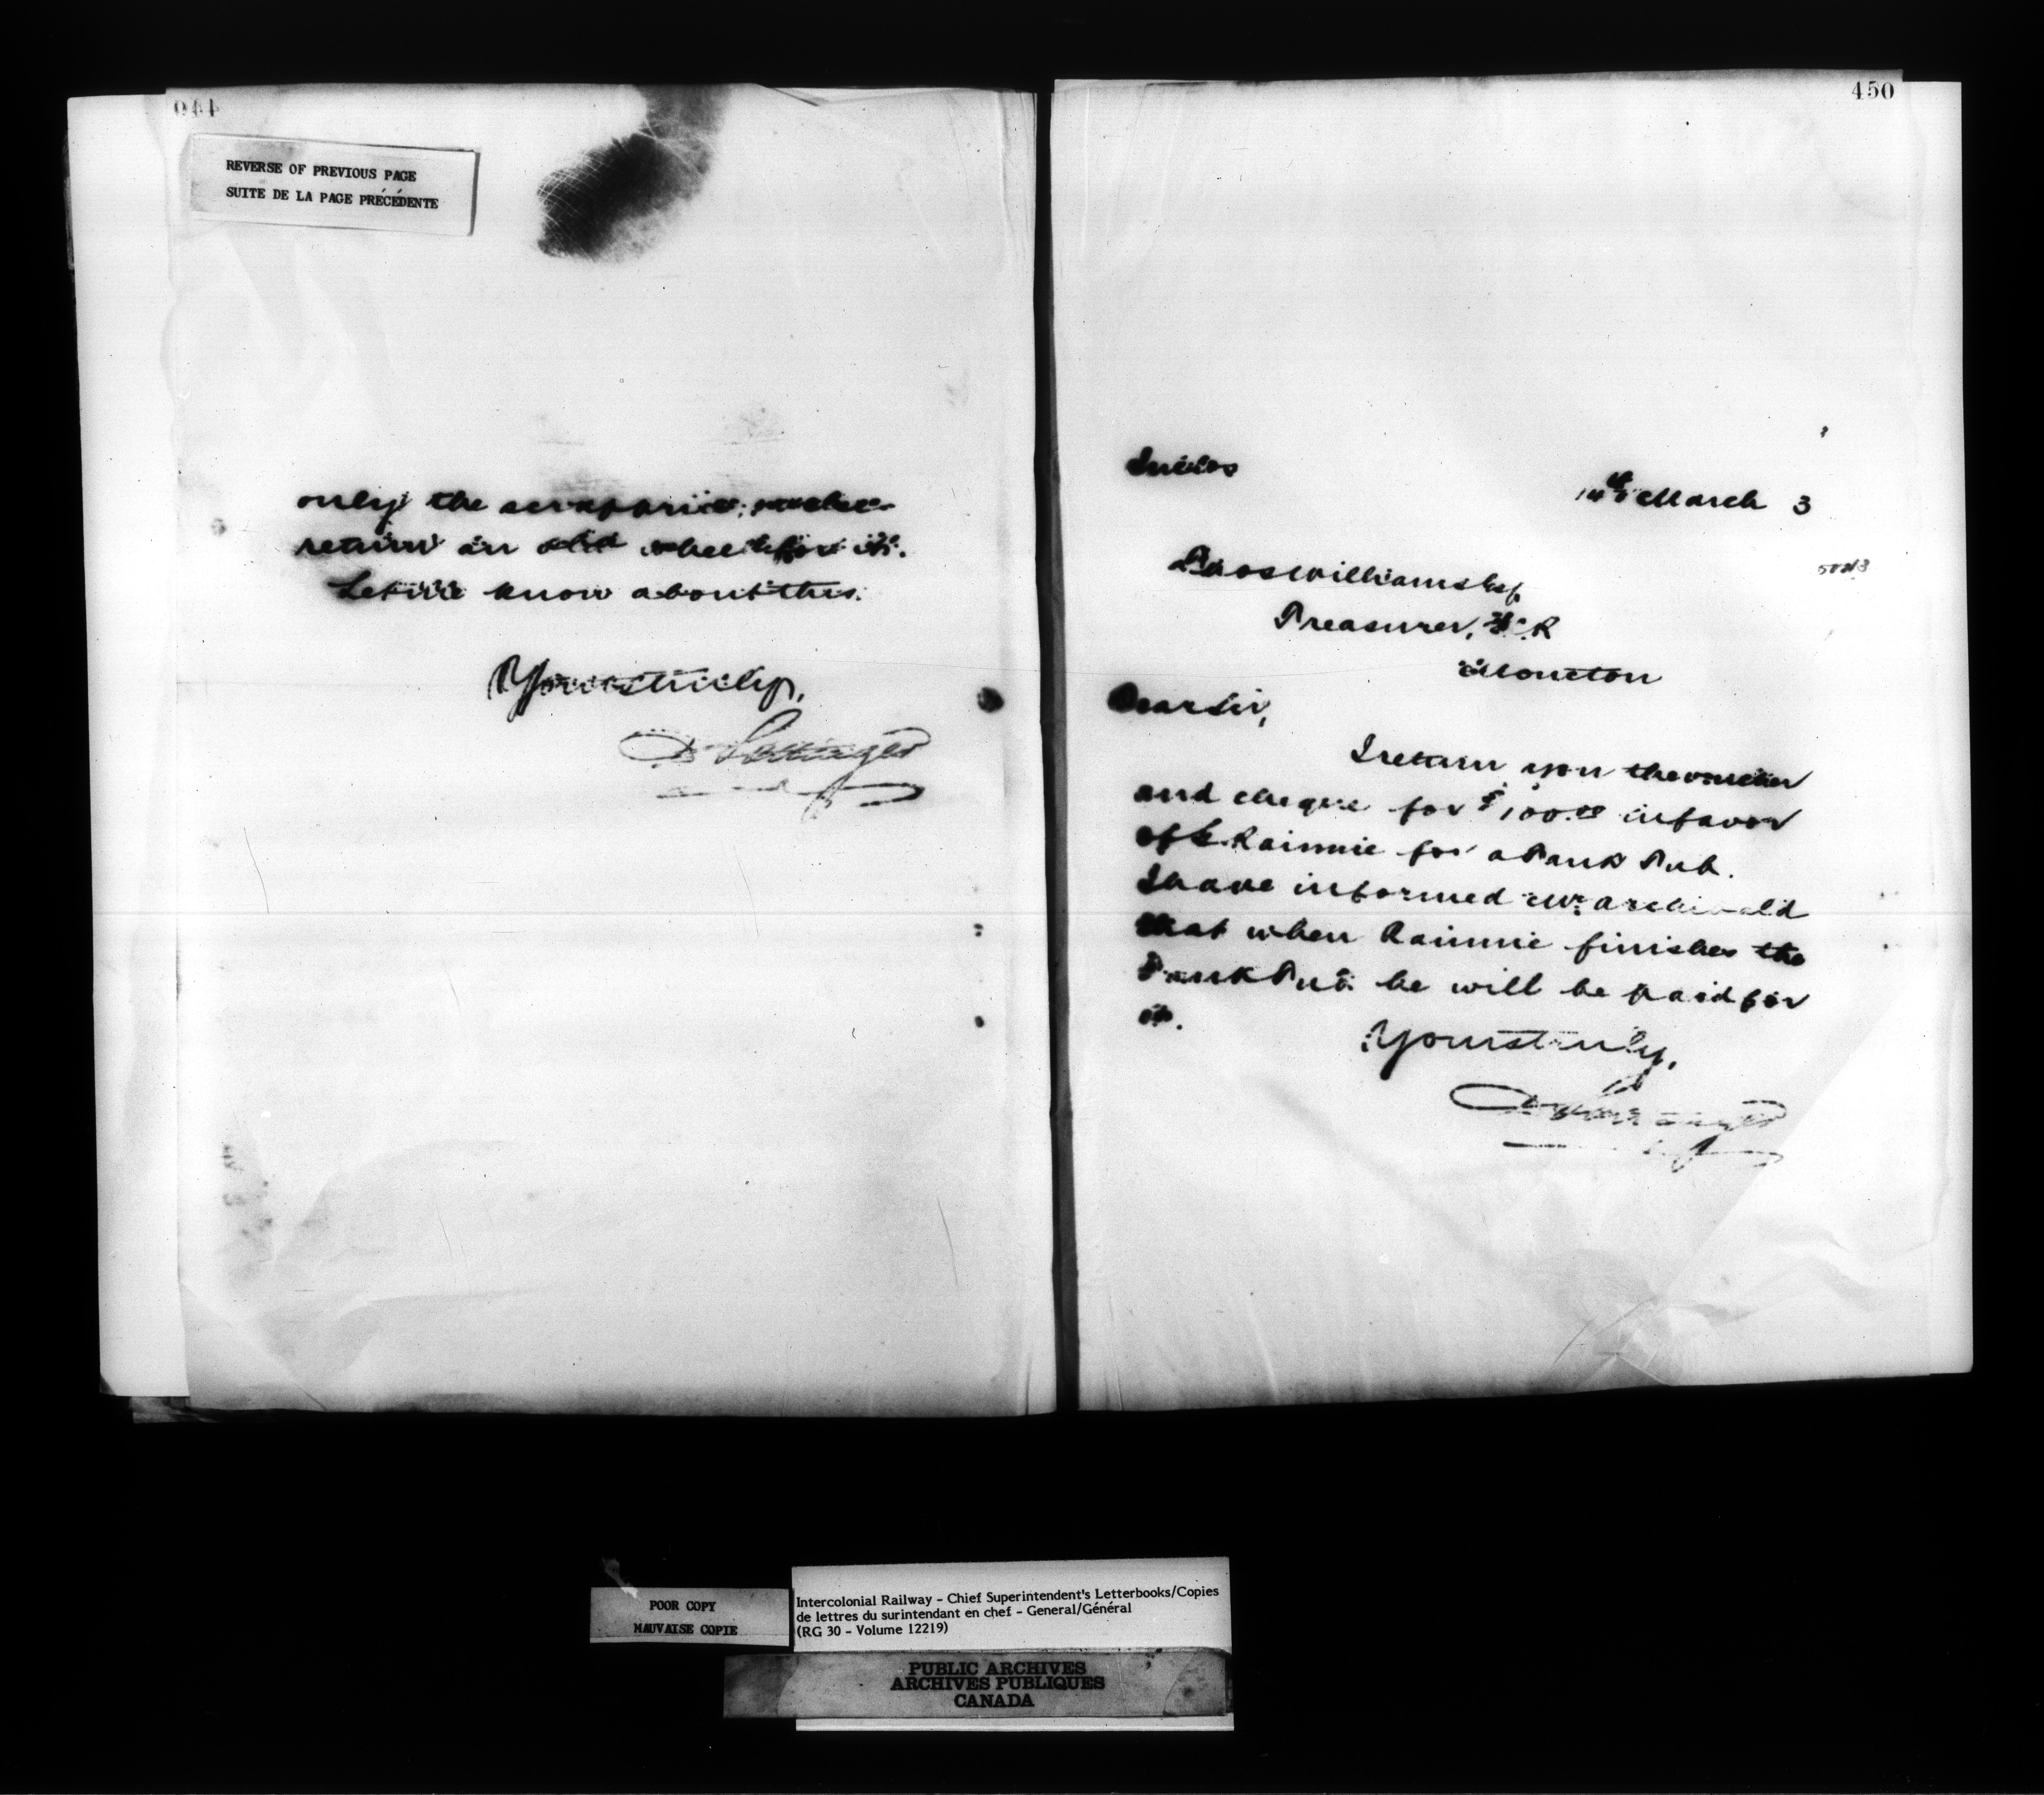 REVERSE OF PREVIOUS PAGE
SUITE DE LA PAGE PRÉCÉDENTE
only the scrap price, and
return an old wheel for it.
Let me know about this.
Yours truly,
D Pottinger
450
14th March 3
Thos Williams Esq.
Treasurer, I.C.R
Moncton
Dear Sir,
I return you the voucher
and cheque for $100.00 in favor
of Rainnie for a Tank Tub.
I have informed Mr Archibald
that when Rainnie finishes the
Tank Tub he will be paid for
it.
Yours truly,
D Pottinger
POOR COPY
MAUVAISE COPIE
Intercolonial Railway - Chief Superintendent's Letterbooks/Copies
de lettres du surintendant en chef - General/Général
(RG 30 - Volume 12219)
PUBLIC ARCHIVES
ARCHIVES PUBLIQUES
CANADA